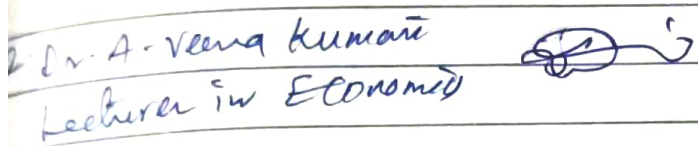 2. Dr. A. Veena Kumari
Lecturer in Economics